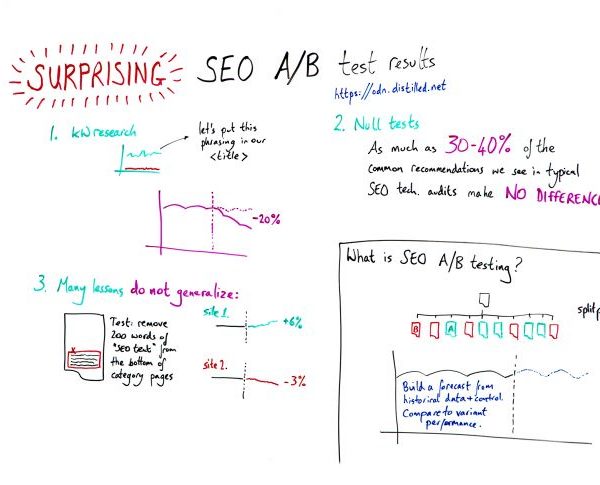 SURPRISING SEO A/B test results
https://odn.distilled.net
1. KW research
let's put this
phrasing in our
<title>
-20%
2. Null tests
As much as 30-40% of the
common recommendations we see in typical
SEO tech. audits make NO DIFFERENC
3. Many lessons do not generalize:
Test: remove
200 words of
"SEO text" from
the bottom of
category pages
site 1.
+6%
site 2.
-3%
What is SEO A/B testing?
B
A
split
Build a forecast from
historical data + control.
Compare to variant
performance.